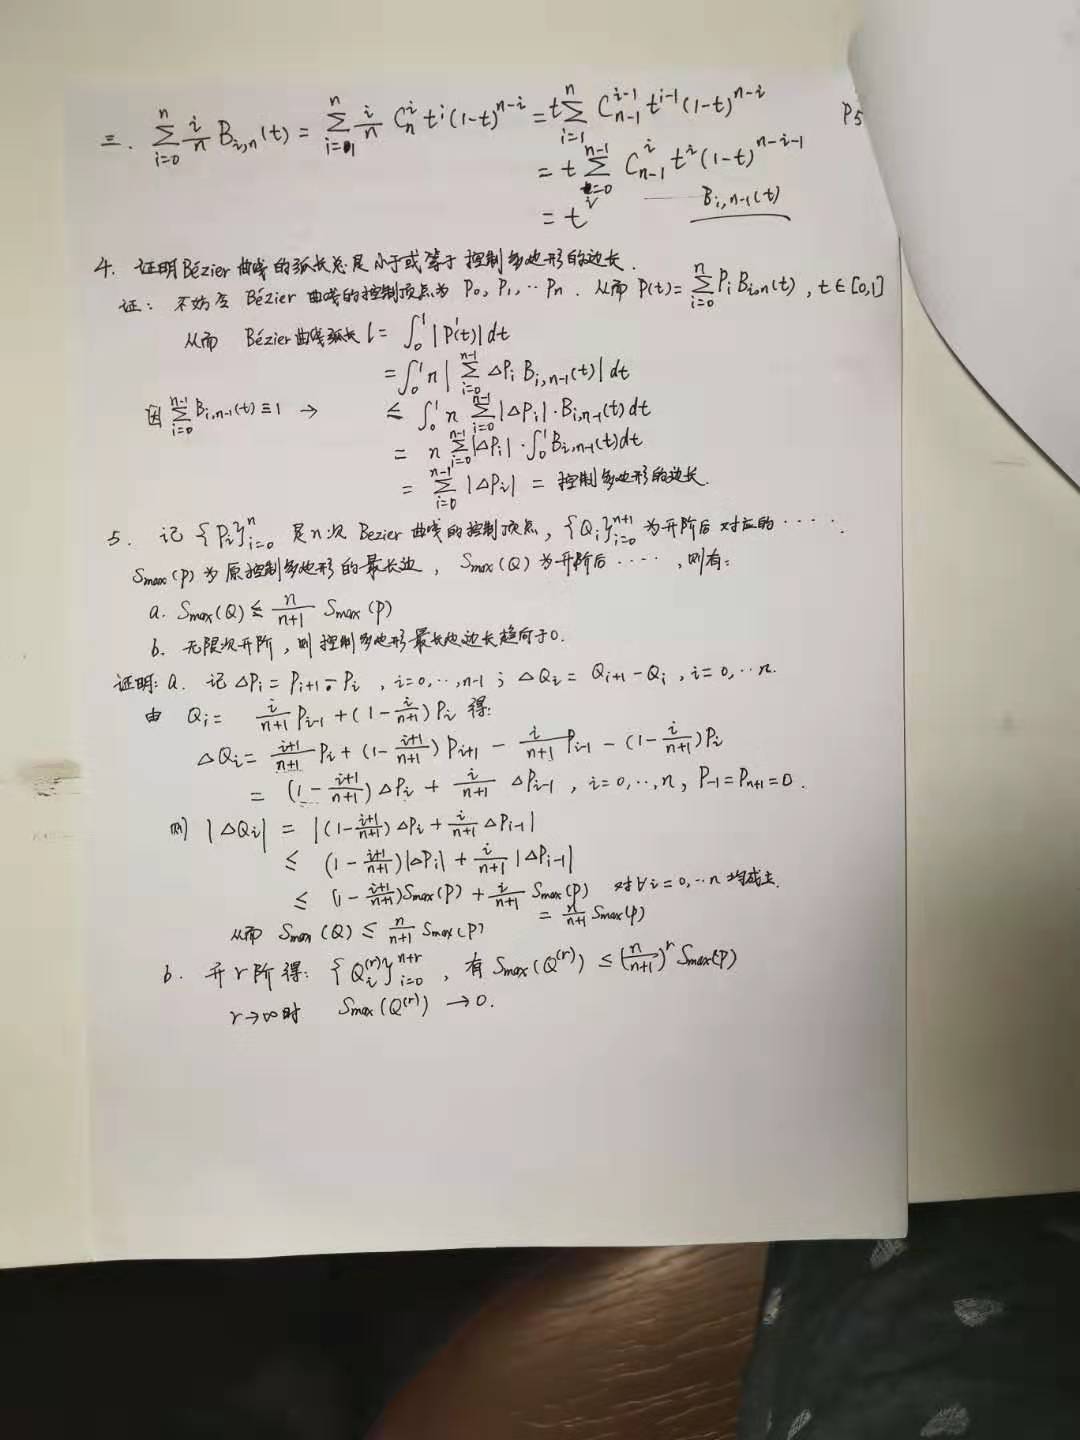 三. \sum_{i=0}^{n} \frac{i}{n} B_{i,n}(t) = \sum_{i=1}^{n} \frac{i}{n} C_n^i t^i (1-t)^{n-i} = t\sum_{i=1}^{n} C_{n-1}^{i-1} t^{i-1} (1-t)^{n-i} P5
= t \sum_{i=0}^{n-1} C_{n-1}^{i} t^i (1-t)^{n-i-1}
= t B_{i,n-1}(t)
4. 证明Bézier曲线的弧长总是小于或等于控制多边形的边长.
证: 不妨令 Bézier 曲线的控制顶点为 P_0, P_1, ·· P_n. 从而 P(t) = \sum_{i=0}^{n} P_i B_{i,n}(t), t∈[0,1]
从而 Bézier曲线弧长 l = \int_0^1 |P'(t)| dt
= \int_0^1 n | \sum_{i=0}^{n-1} ΔP_i B_{i,n-1}(t) | dt
因 \sum_{i=0}^{n-1} B_{i,n-1}(t) ≡ 1 → ≤ \int_0^1 n \sum_{i=0}^{n-1} |ΔP_i| · B_{i,n-1}(t) dt
= n \sum_{i=0}^{n-1} |ΔP_i| · \int_0^1 B_{i,n-1}(t) dt
= \sum_{i=0}^{n-1} |ΔP_i| = 控制多边形的边长.
5. 记 {P_i}_{i=0}^{n} 是n次 Bezier 曲线的控制顶点, {Q_i}_{i=0}^{n+1} 为升阶后对应的·····
S_{max}(P) 为原控制多边形的最长边, S_{max}(Q) 为升阶后····, 则有:
a. S_{max}(Q) ≤ \frac{n}{n+1} S_{max}(P)
b. 无限次升阶, 则控制多边形最长边边长趋向于0.
证明: a. 记 ΔP_i = P_{i+1} - P_i, i=0,··,n-1; ΔQ_i = Q_{i+1} - Q_i, i=0,··n.
由 Q_i = \frac{i}{n+1} P_{i-1} + (1 - \frac{i}{n+1}) P_i 得:
ΔQ_i = \frac{i+1}{n+1} P_i + (1 - \frac{i+1}{n+1}) P_{i+1} - \frac{i}{n+1} P_{i-1} - (1 - \frac{i}{n+1}) P_i
= (1 - \frac{i+1}{n+1}) ΔP_i + \frac{i}{n+1} ΔP_{i-1}, i=0,··,n, P_{-1} = P_{n+1} = 0.
则 |ΔQ_i| = |(1 - \frac{i+1}{n+1}) ΔP_i + \frac{i}{n+1} ΔP_{i-1}|
≤ (1 - \frac{i+1}{n+1}) |ΔP_i| + \frac{i}{n+1} |ΔP_{i-1}|
≤ (1 - \frac{i+1}{n+1}) S_{max}(P) + \frac{i}{n+1} S_{max}(P) 对∀i=0,··n 均成立.
= \frac{n}{n+1} S_{max}(P)
从而 S_{max}(Q) ≤ \frac{n}{n+1} S_{max}(P)
b. 升r阶得: {Q_i^{(r)}}_{i=0}^{n+r}, 有 S_{max}(Q^{(r)}) ≤ (\frac{n}{n+1})^r S_{max}(P)
r→∞时 S_{max}(Q^{(r)}) → 0.